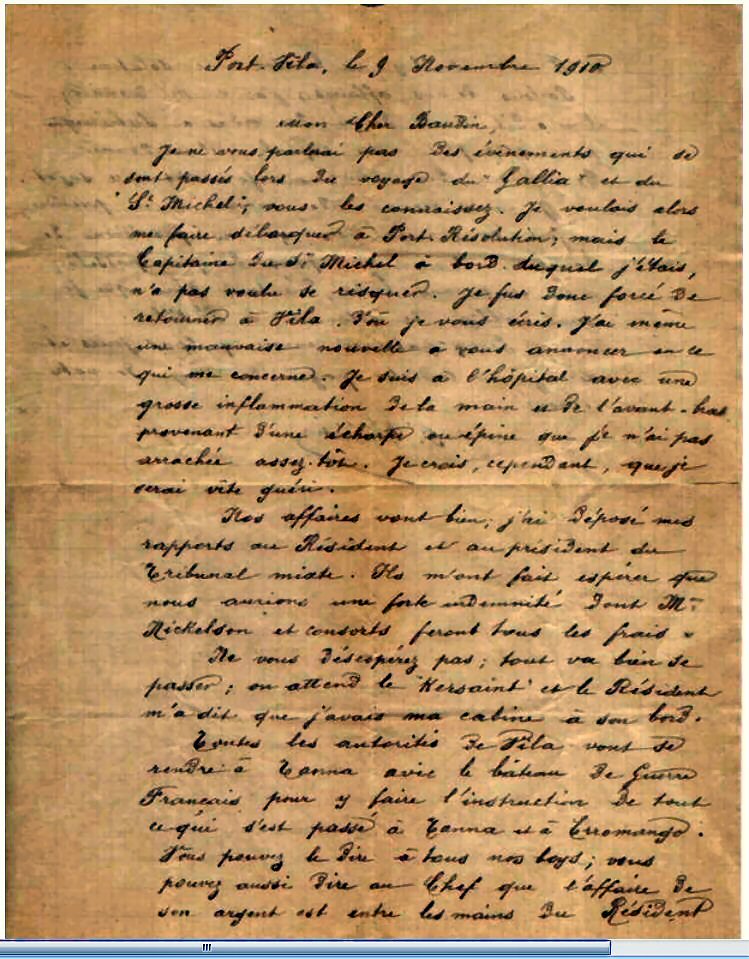 Port-Vila, le 9 Novembre 1910
Mon Cher Baudin,
Je ne vous parlerai pas des évènements qui se
sont passés lors du voyage du "Gallia" et du
"St Michel"; vous les connaissez. Je voulais alors
me faire débarquer à Port Résolution; mais le
Capitaine du St Michel à bord duquel j'étais,
n'a pas voulu se risquer. Je fus donc forcé de
retourner à Vila d'où je vous écris. J'ai même
une mauvaise nouvelle à vous annoncer en ce
qui me concerne. Je suis à l'hôpital avec une
grosse inflammation de la main et de l'avant-bras
provenant d'une écharpe ou épine que je n'ai pas
arrachée assez-tôt. Je crois, cependant, que je
serai vite guéri.
Nos affaires vont bien; j'ai déposé mes
rapports au Résident et au président du
Tribunal mixte. Ils m'ont fait espérer que
nous aurions une forte indemnité dont Mr
Nickelson et consorts feront tous les frais.
Ne vous désespérez pas; tout va bien se
passer; on attend le "Kersaint" et le Résident
m'a dit que j'avais ma cabine à son bord.
Toutes les autorités de Vila vont se
rendre à Tanna avec le bâteau de Guerre
Français pour y faire l'instruction de tout
ce qui s'est passé à Tanna et à Erromango.
Vous pouvez le dire à tous nos boys; vous
pouvez aussi dire au Chef que l'affaire de
son argent est entre les mains du Résident